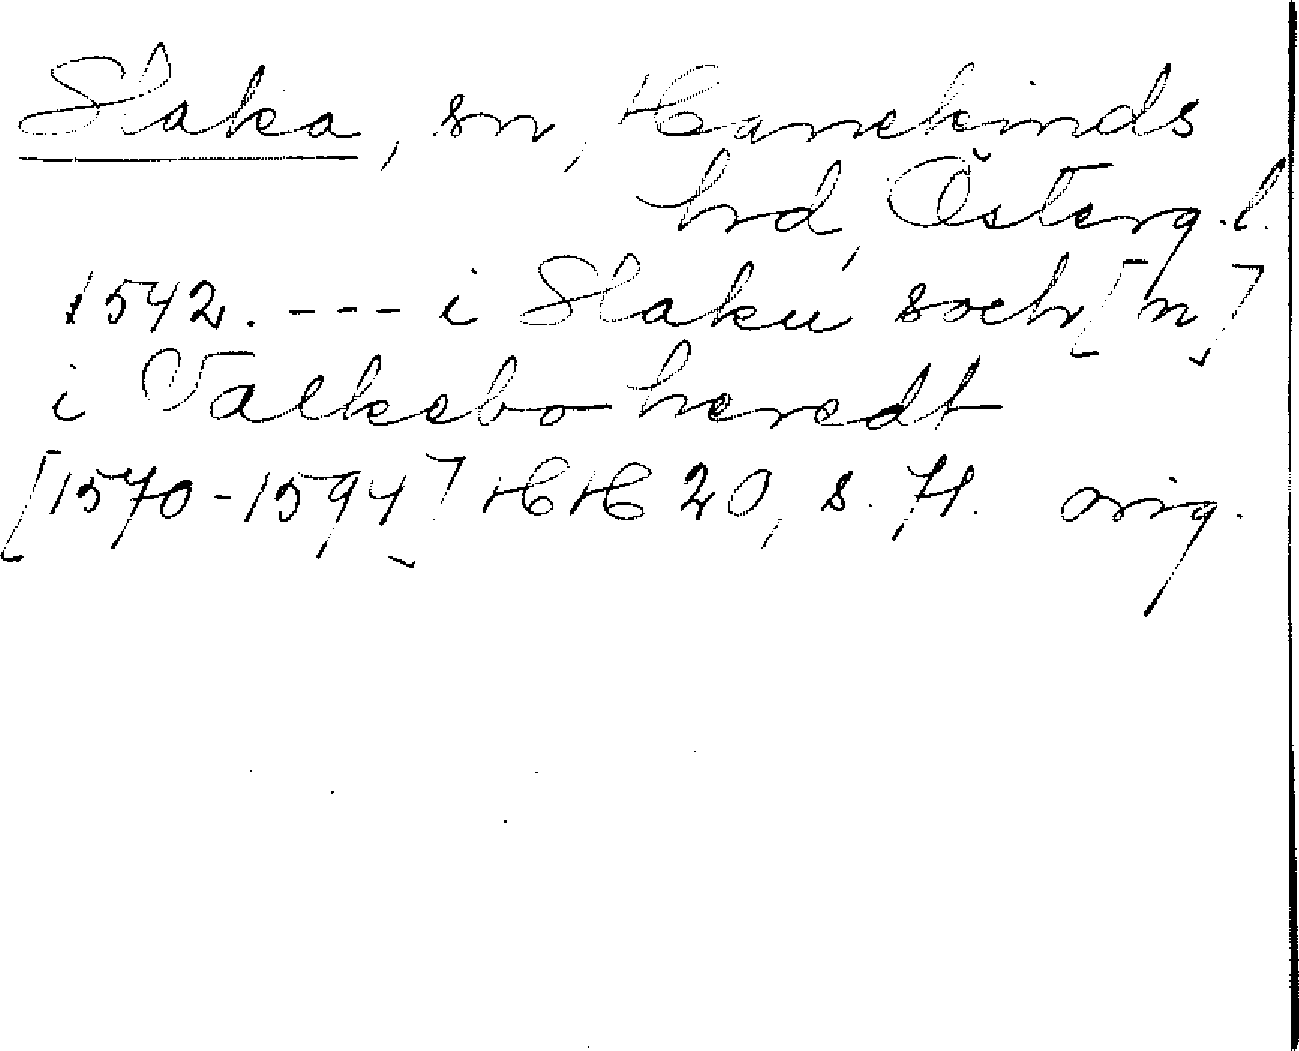 Slaka, sn, Hanekinds
hrd, Österg.l.
1542. --- i Slaku soch[n]
i Valkebo heredt
[1570-1594] HH 20, s. 71. orig.